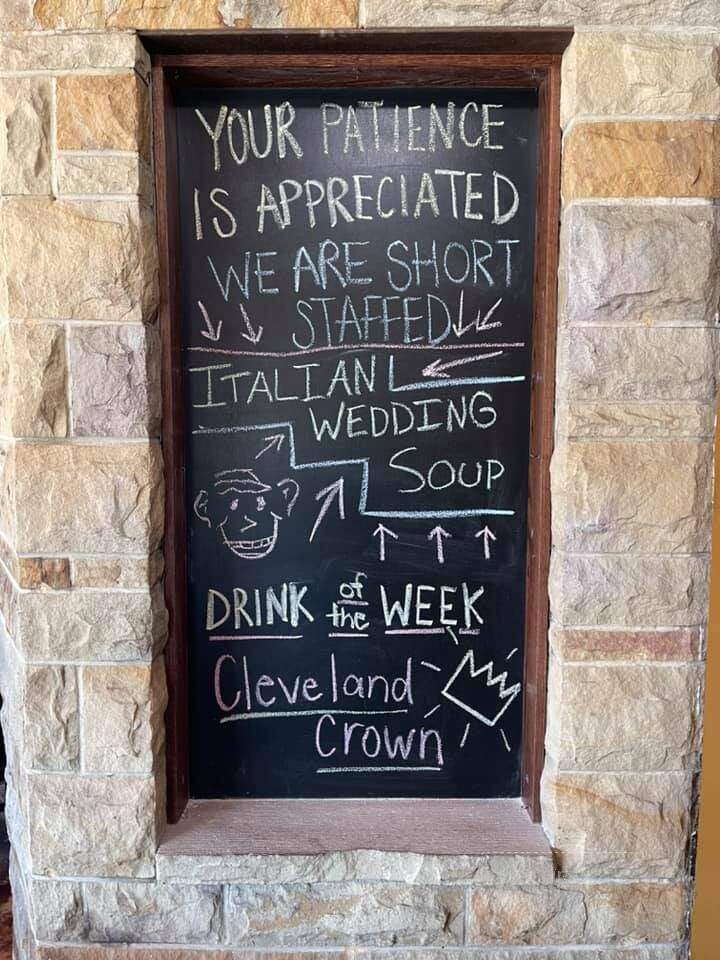 YOUR PATIENCE
IS APPRECIATED
WE ARE SHORT
STAFFED
ITALIAN
WEDDING
SOUP
DRINK of the WEEK
Cleveland
Crown